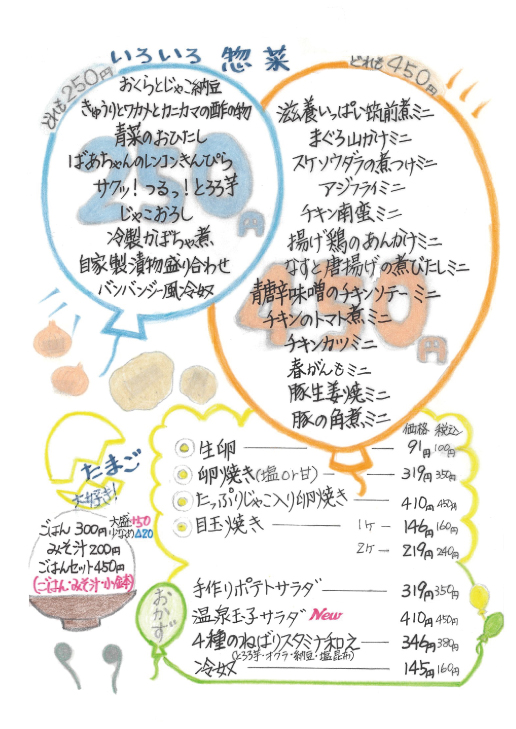 いろいろ 惣菜
どれも250円
おくらとじゃこ納豆
きゅうりとワカメとカニカマの酢の物
青菜のおひたし
ばあちゃんのレンコンきんぴら
サクッ!つるっ!とろろ芋
じゃこおろし
冷製かぼちゃ煮
自家製漬物盛り合わせ
バンバンジー風冷奴
250円
どれも450円
滋養いっぱい筑前煮ミニ
まぐろ山かけミニ
スケソウダラの煮つけミニ
アジフライミニ
チキン南蛮ミニ
揚げ鶏のあんかけミニ
なすと唐揚げの煮びたしミニ
青唐辛味噌のチキンソテーミニ
チキンのトマト煮ミニ
チキンカツミニ
春がんもミニ
豚生姜焼ミニ
豚の角煮ミニ
450円
たまご
大好き!
価格 税込
生卵 91円 100円
卵焼き(塩or甘) 319円 350円
たっぷりじゃこ入り卵焼き 410円 450円
目玉焼き 1ケ 146円 160円
2ケ 219円 240円
ごはん 300円 大盛+50 少なめ△20
みそ汁 200円
ごはんセット450円
(ごはん・みそ汁・小鉢)
おかず
手作りポテトサラダ 319円 350円
温泉玉子サラダ New 410円 450円
4種のねばりスタミナ和え 346円 380円
(とろろ芋・オクラ・納豆・塩昆布)
冷奴 145円 160円